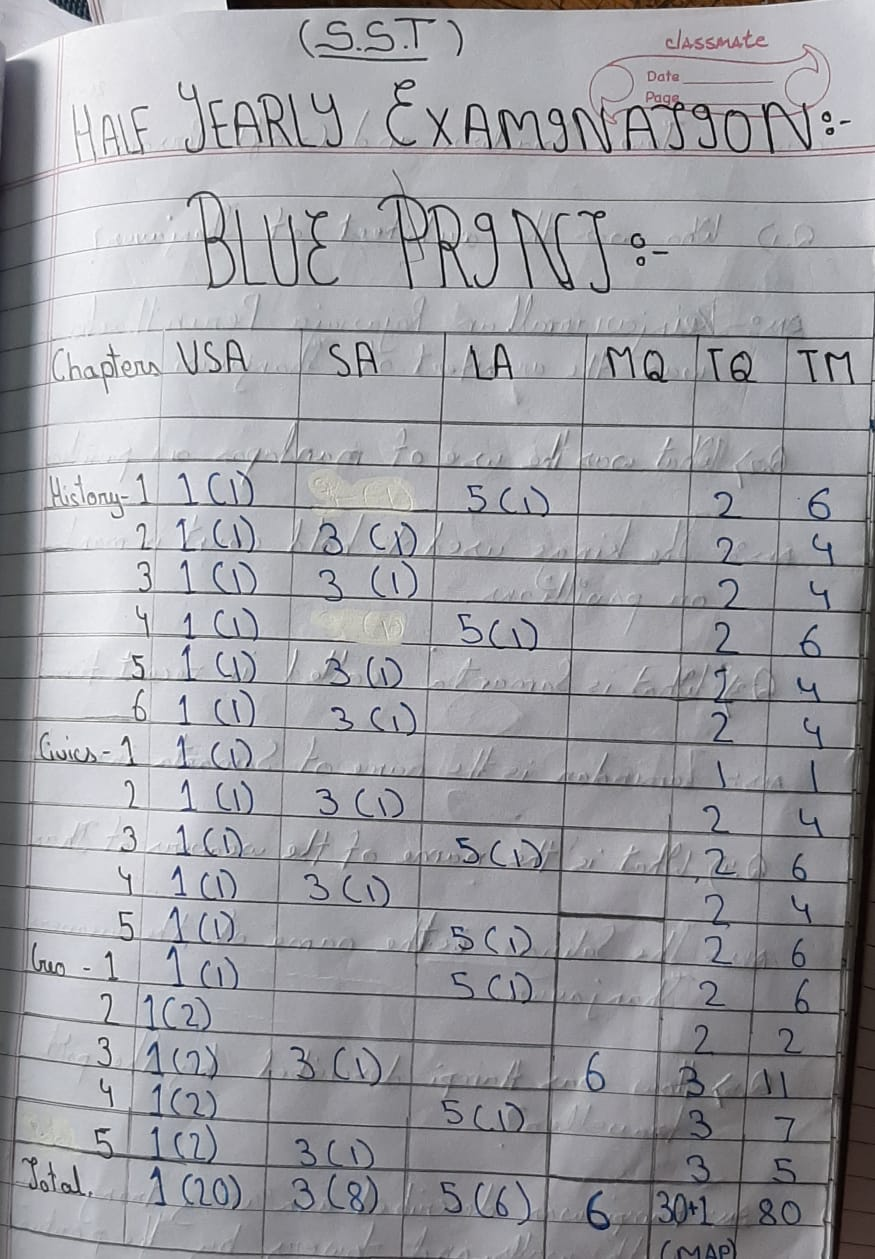 (S.S.T)
classmate
Date
Page
HALF YEARLY EXAMINATION:-
BLUE PRINT:-
Chapters VSA SA LA MQ TQ TM
History-1 1(1) 5(1) 2 6
2 1(1) 3(1) 2 4
3 1(1) 3(1) 2 4
4 1(1) 5(1) 2 6
5 1(1) 3(1) 2 4
6 1(1) 3(1) 2 4
Civics-1 1(1) 1 1
2 1(1) 3(1) 2 4
3 1(1) 5(1) 2 6
4 1(1) 3(1) 2 4
5 1(1) 5(1) 2 6
Geo-1 1(1) 5(1) 2 6
2 1(2) 2 2
3 1(2) 3(1) 6 3 11
4 1(2) 5(1) 3 7
5 1(2) 3(1) 3 5
Total. 1(20) 3(8) 5(6) 6 30+1 80
(MAP)